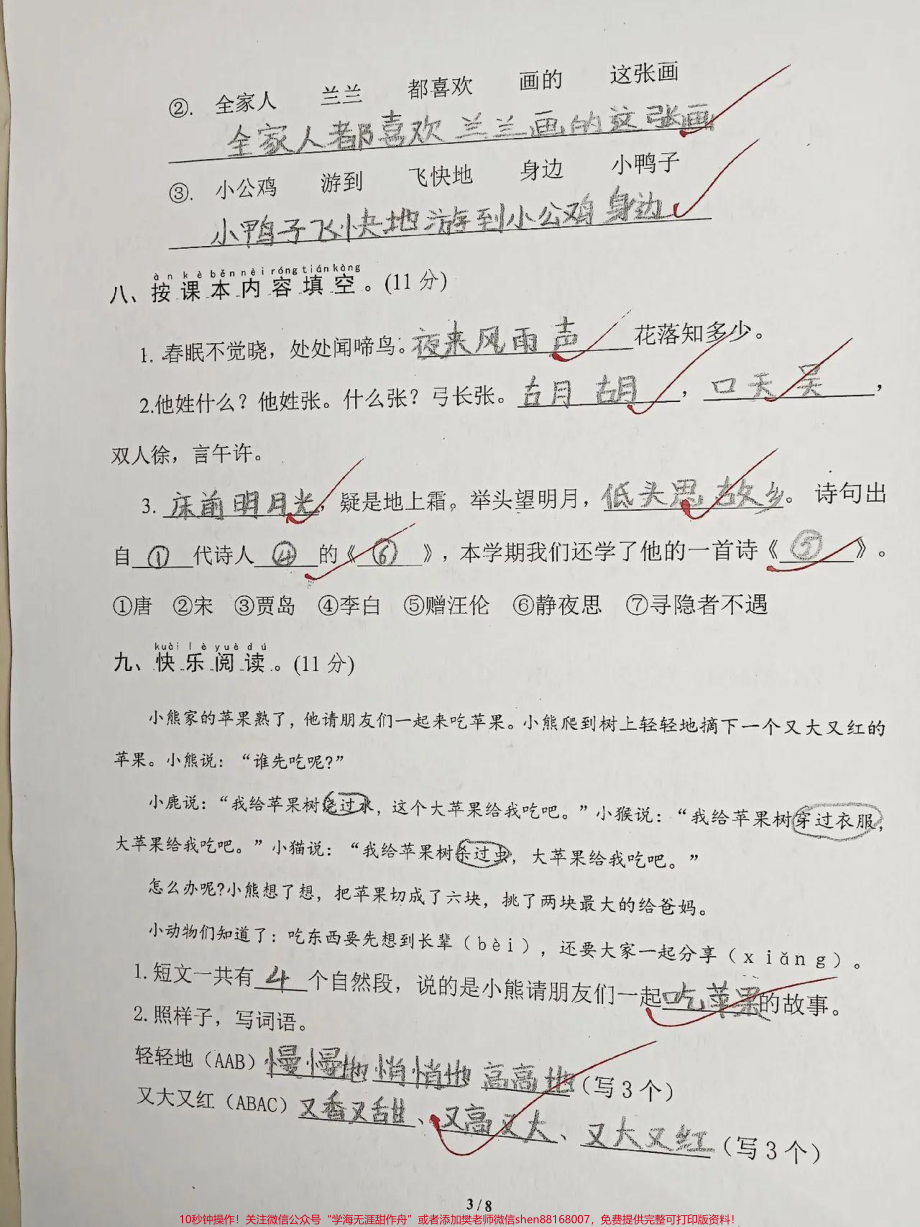 ②. 全家人 兰兰 都喜欢 画的 这张画
全家人都喜欢兰兰画的这张画
③. 小公鸡 游到 飞快地 身边 小鸭子
小鸭子飞快地游到小公鸡身边
àn kè běn nèi róng tián kòng
八、按课本内容填空。(11分)
1. 春眠不觉晓，处处闻啼鸟。夜来风雨声花落知多少。
2.他姓什么？他姓张。什么张？弓长张。古月胡，口天吴，
双人徐，言午许。
3. 床前明月光，疑是地上霜。举头望明月，低头思故乡。诗句出
自①代诗人④的《⑥》，本学期我们还学了他的一首诗《⑤》。
①唐 ②宋 ③贾岛 ④李白 ⑤赠汪伦 ⑥静夜思 ⑦寻隐者不遇
kuài lè yuè dú
九、快乐阅读。(11分)
小熊家的苹果熟了，他请朋友们一起来吃苹果。小熊爬到树上轻轻地摘下一个又大又红的
苹果。小熊说：“谁先吃呢?”
小鹿说：“我给苹果树浇过水，这个大苹果给我吃吧。”小猴说：“我给苹果树穿过衣服，
大苹果给我吃吧。”小猫说：“我给苹果树杀过虫，大苹果给我吃吧。”
怎么办呢?小熊想了想，把苹果切成了六块，挑了两块最大的给爸妈。
小动物们知道了：吃东西要先想到长辈（bèi），还要大家一起分享（xiǎng）。
1. 短文一共有4个自然段，说的是小熊请朋友们一起吃苹果的故事。
2. 照样子，写词语。
轻轻地（AAB）慢慢地 悄悄地 高高地（写3个）
又大又红（ABAC）又香又甜、又高又大、又大又红（写3个）
3 / 8
10秒钟操作！关注微信公众号“学海无涯甜作舟”或者添加樊老师微信shen88168007，免费提供完整可打印版资料！